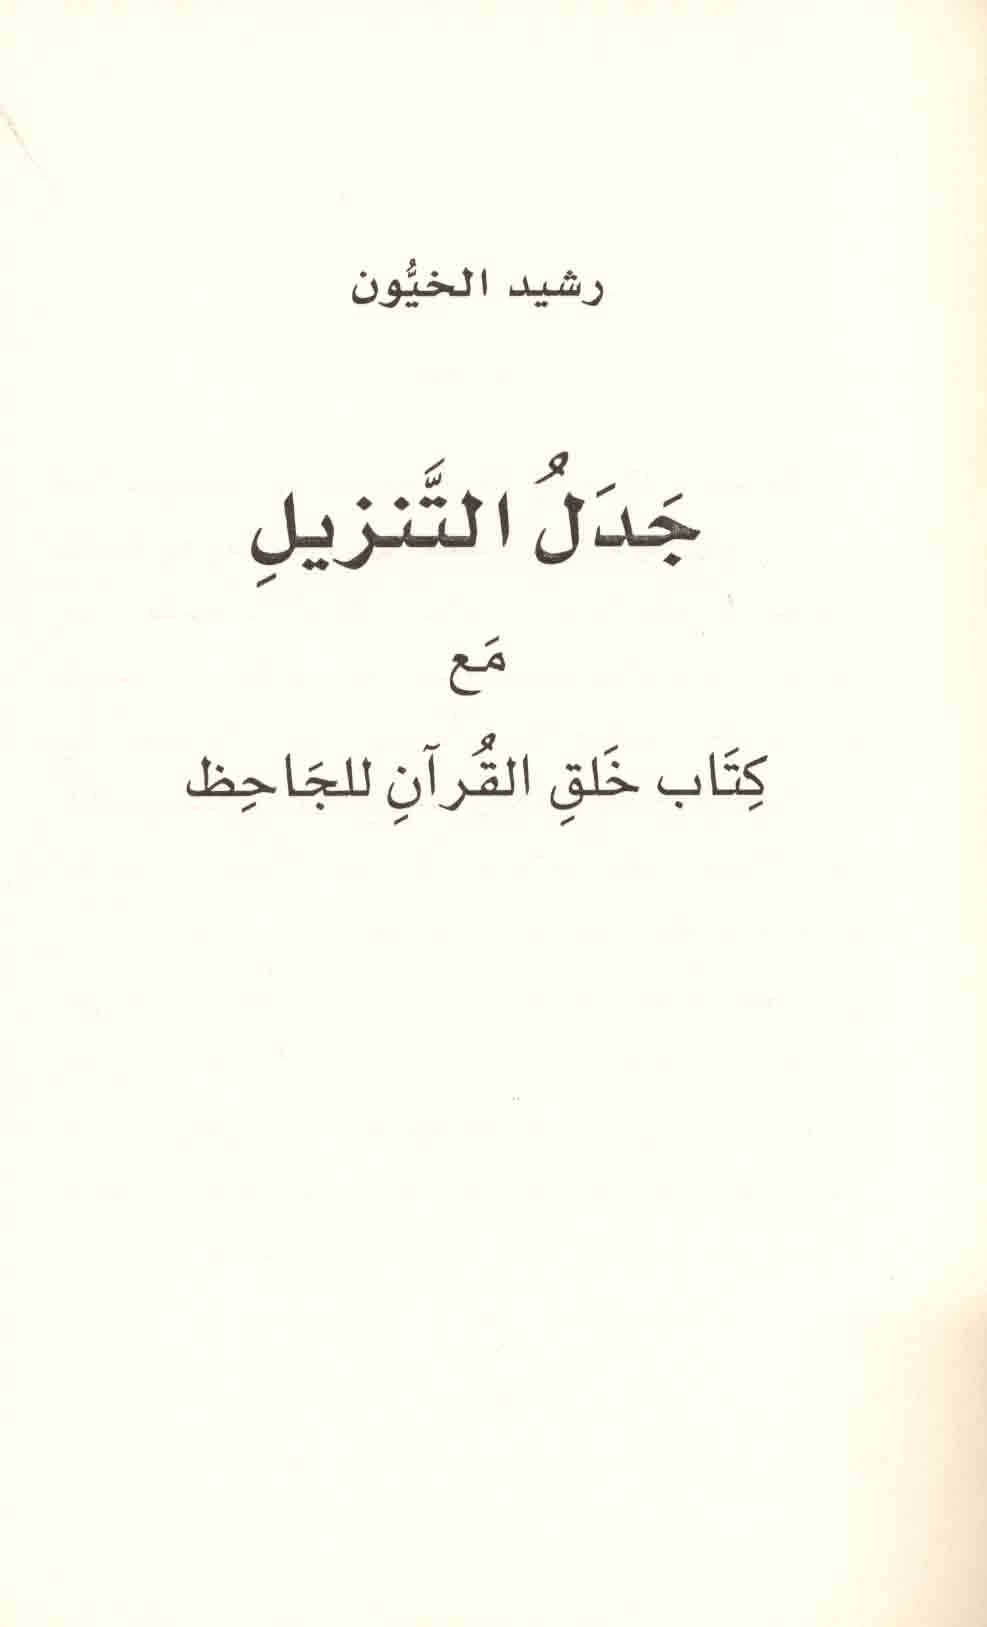 رشيد الخيُّون
جَدَلُ التَّنزيلِ
مَع
كِتَاب خَلقِ القُرآنِ للجَاحِظ